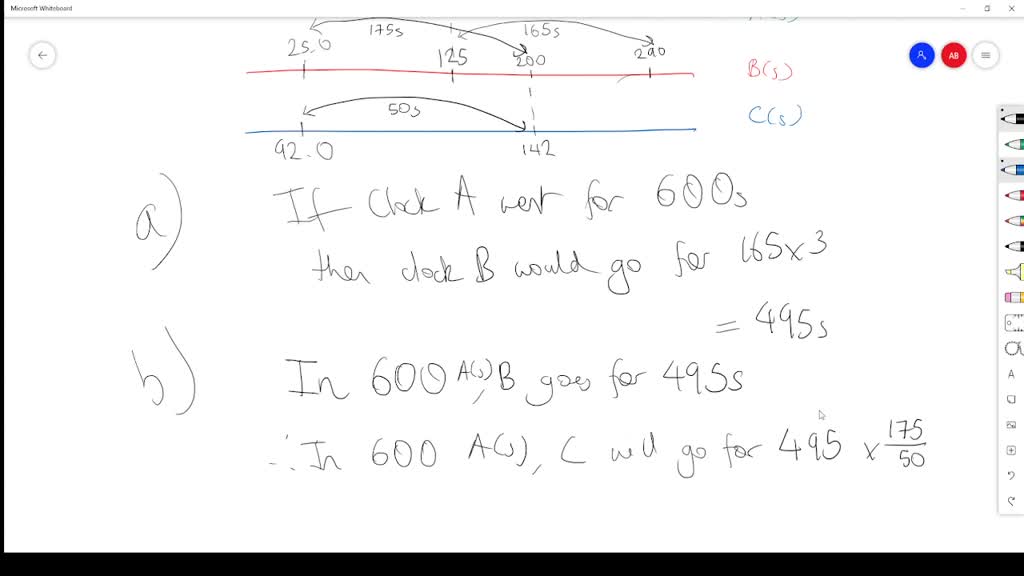 Microsoft Whiteboard
175s 165s
25.0 125 200 290
B(s)
AB
50s
C(s)
92.0 142
a) If Clock A went for 600s
then clock B would go for 165x3
= 495s
b) In 600 A(s), B goes for 495s
∴ In 600 A(s), C will go for 495 x 175/50
A